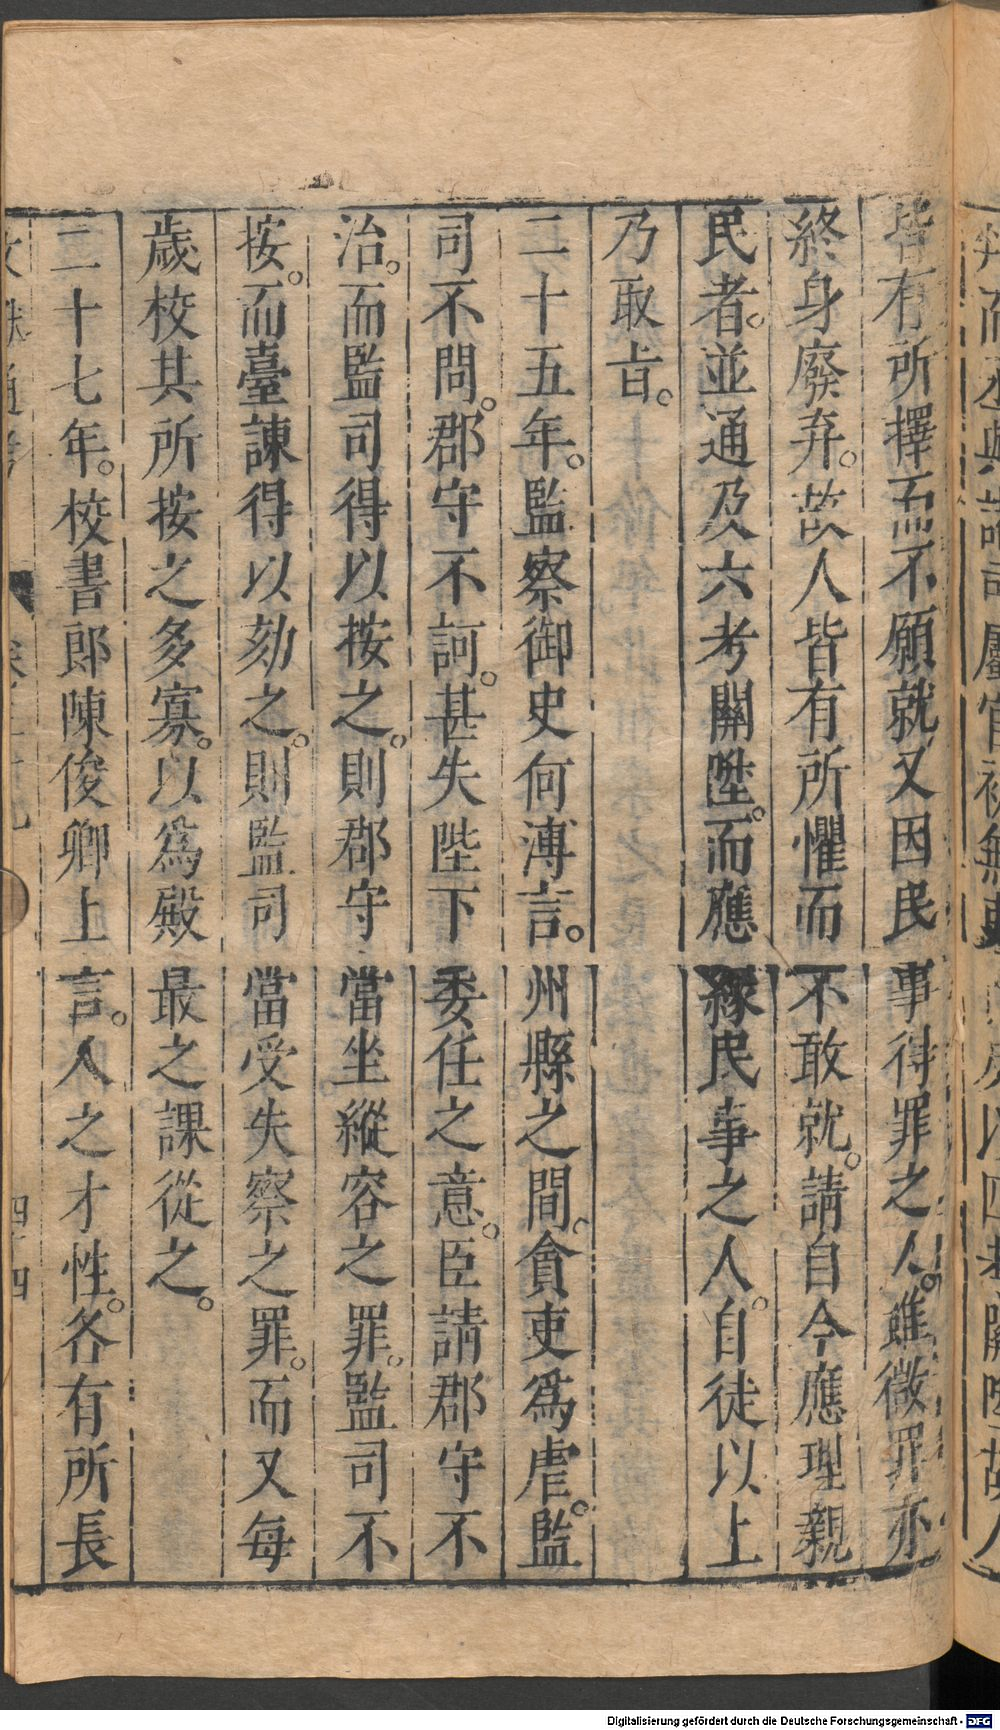 皆有所擇而不願就又因民事得罪之人雖微罪亦
終身廢弃。故人皆有所懼而不敢就。請自今應理親
民者。並通及六考關陞。而應緣民事之人。自徒以上
乃取旨。
二十五年。監察御史何溥言。州縣之間。貪吏爲虐。監
司不問。郡守不訶。甚失陛下委任之意。臣請郡守不
治。而監司得以按之。則郡守當坐縱容之罪。監司不
按。而臺諫得以劾之。則監司當受失察之罪。而又每
歲校其所按之多寡。以爲殿最之課從之。
二十七年。校書郎陳俊卿上言。人之才性。各有所長
文獻通考
四十四
Digitalisierung gefördert durch die Deutsche Forschungsgemeinschaft - DFG